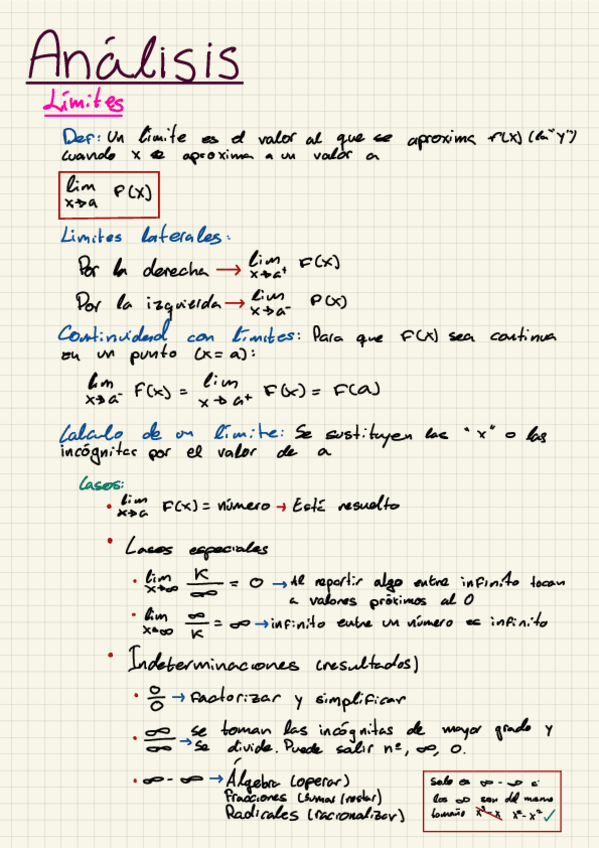 Análisis
Límites
Def: Un límite es el valor al que se aproxima f(x) (la "y")
cuando x se aproxima a un valor a
lim x→a F(x)
Limites laterales:
Por la derecha → lim x→a⁺ F(x)
Por la izquierda → lim x→a⁻ F(x)
Continuidad con límites: Para que F(x) sea continua
en un punto (x=a):
lim x→a⁻ F(x) = lim x→a⁺ F(x) = F(a)
Calculo de un límite: Se sustituyen las "x" o las
incógnitas por el valor de a
Casos:
• lim x→a F(x) = número → Está resuelto
• Casos especiales
• lim x→∞ K/∞ = 0 → Al repartir algo entre infinito tocan
a valores próximos al 0
• lim x→∞ ∞/K = ∞ → infinito entre un número es infinito
• Indeterminaciones (resultados)
• 0/0 → Factorizar y simplificar
• ∞/∞ → se toman las incógnitas de mayor grado y
se divide. Puede salir nº, ∞, 0.
• ∞ - ∞ → Álgebra (operar)
Fracciones (sumar/restar)
Radicales (racionalizar)
Solo es ∞ - ∞ si
los ∞ son del mismo
tamaño x³-x x²-x² ✓